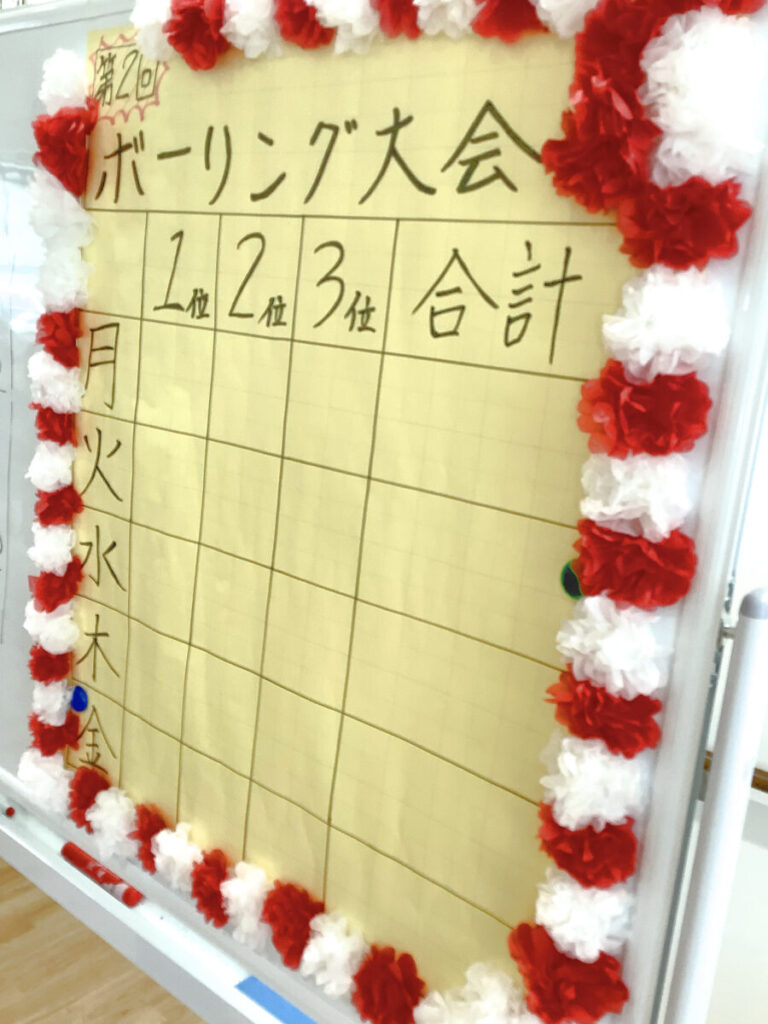 第2回
ボーリング大会
1位 2位 3位 合計
月
火
水
木
金